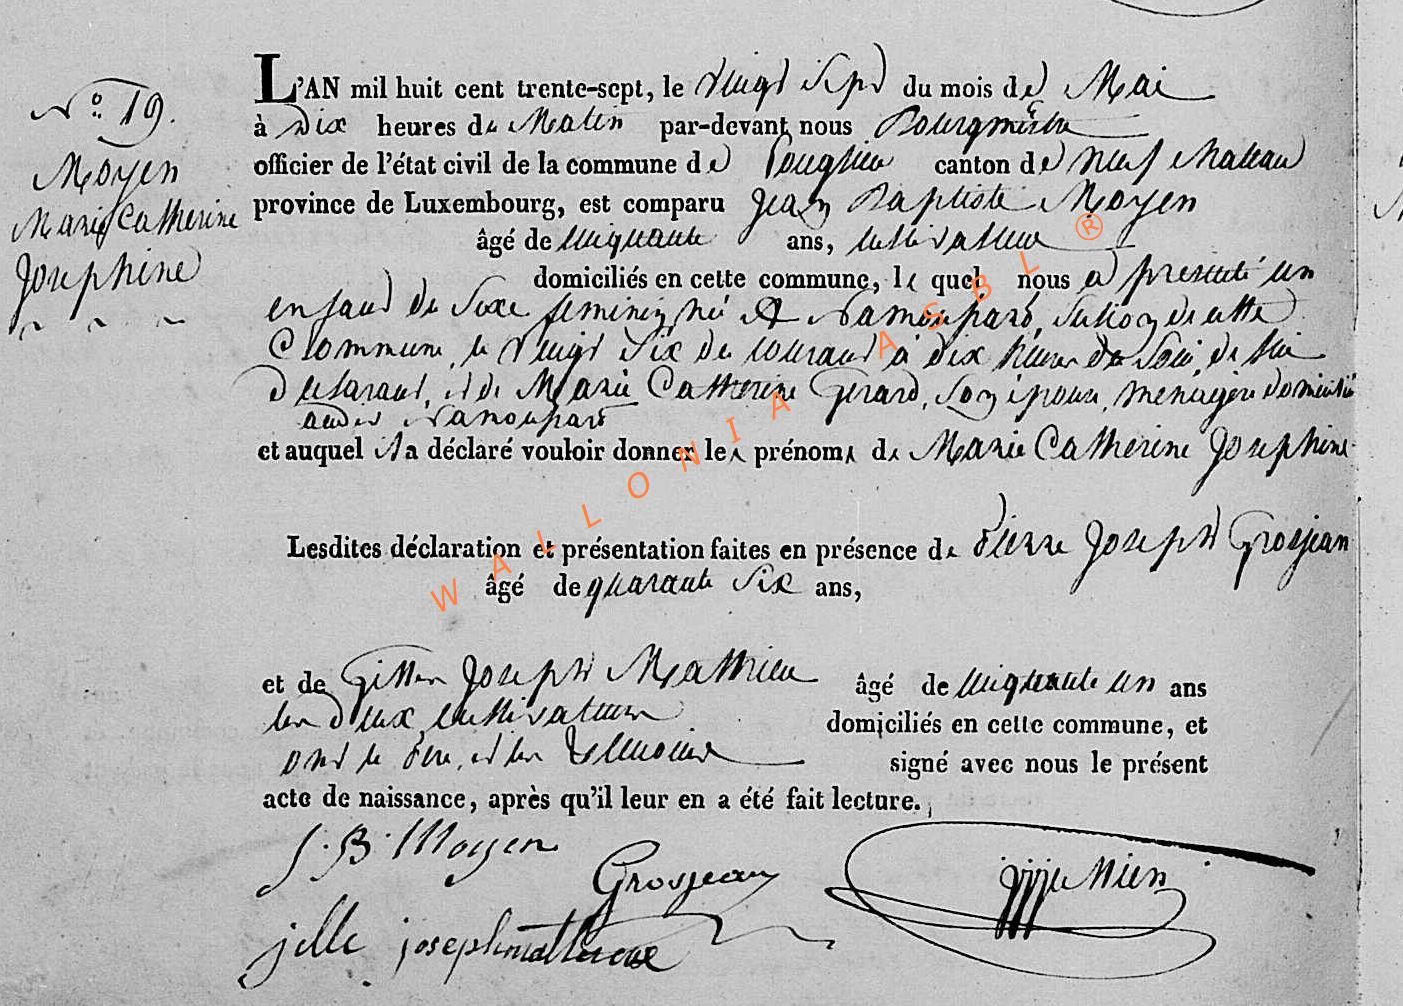 N.º 19.
Moyen
Marie Catherine
Josephine
L'AN mil huit cent trente-sept, le vingt sept du mois de Mai
à Dix heures du Matin par-devant nous Bourgmestre
officier de l'état civil de la commune de Longlier canton de Neufchateau
province de Luxembourg, est comparu Jean Baptiste Moyen
âgé de cinquante ans, cultivateur
domiciliés en cette commune, le quel nous a présenté un
enfant de sexe feminin né à Namoupard, section de cette
Commune, le vingt six du courant à dix heures du soir, de lui
declarant, et de Marie Catherine Gerard, son épouse, menagère domiciliée
audit Namoupard
et auquel il a déclaré vouloir donner les prénoms de Marie Catherine Josephine
Lesdites déclaration et présentation faites en présence de Pierre Joseph Grosjean
âgé de quarante six ans,
et de Gillet Joseph Mathieu âgé de cinquante un ans
les deux cultivateurs domiciliés en cette commune, et
ont le père, et les témoins signé avec nous le présent
acte de naissance, après qu'il leur en a été fait lecture.
J. B. Moyen
Grosjean
jille joseph mathieux
WALLONIA ASBL ®